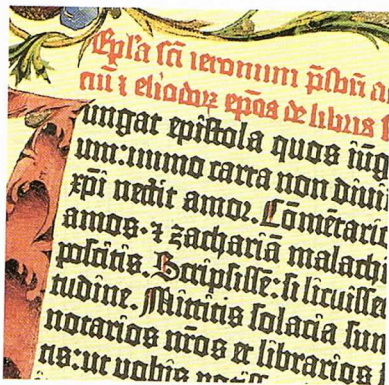 Epl'a sci ieronimi p̄sbri a
tiū ⁊ eliodorꝝ epos de libris s
ungat epistola quos iūg
um:immo carta non divi
xp̄i nectit amor. Comētari
amos·⁊ zachariā malach
poscitis. Scripsisse:si licuisse
tudine. Mittitis solacia sum
notarios nr̄os et librarios
ns:ut vobis